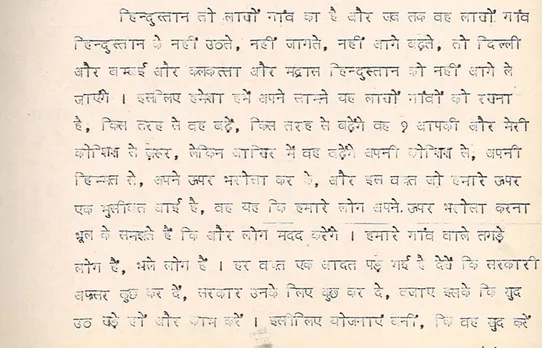 हिन्दुस्तान तो लाखों गांव का है और जब तक वह लाखों गांव
हिन्दुस्तान के नहीं उठते, नहीं जागते, नहीं आगे बढ़ते, तो दिल्ली
और बम्बई और कलकत्ता और मद्रास हिन्दुस्तान को नहीं आगे ले
जाएंगे । इसलिए हमेशा हमें अपने सामने यह लाखों गांवों को रखना
है, किस तरह से वह बढ़ें, किस तरह से बढ़ेंगे वह ? आपकी और मेरी
कोशिश से ज़रूर, लेकिन आखिर में वह बढ़ेंगे अपनी कोशिश से, अपनी
हिम्मत से, अपने ऊपर भरोसा कर के, और इस वक्त जो हमारे ऊपर
एक मुसीबत आई है, वह यह कि हमारे लोग अपने ऊपर भरोसा करना
भूल के समझते हैं कि और लोग मदद करेंगे । हमारे गांव वाले तगड़े
लोग हैं, भले लोग हैं । हर वक्त एक आदत पड़ गई है देखें कि सरकारी
अफसर कुछ कर दें, सरकार उनके लिए कुछ कर दे, बजाए इसके कि खुद
उठ खड़े हों और काम करें । इसीलिए योजनाएं बनीं, कि वह खुद करें